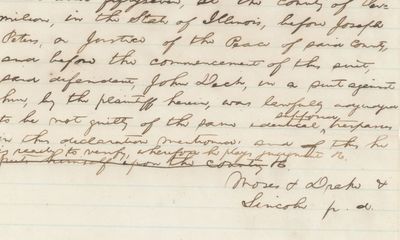 at the County of Ver-
milion, in the State of Illinois, before Joseph
Peters, a Justice of the Peace of said County,
and before the commencement of this suit,
said defendant, John Deck, in a suit against
him, by the plaintiff herein, was lawfully acquitted
supposed
to be not guilty of the same identical, trespasses
in this declaration mentioned. and of this he
is ready to verify, wherefore he prays judgment &c.
puts himself upon the country &c.
Moses & Drake &
Lincoln p. d.